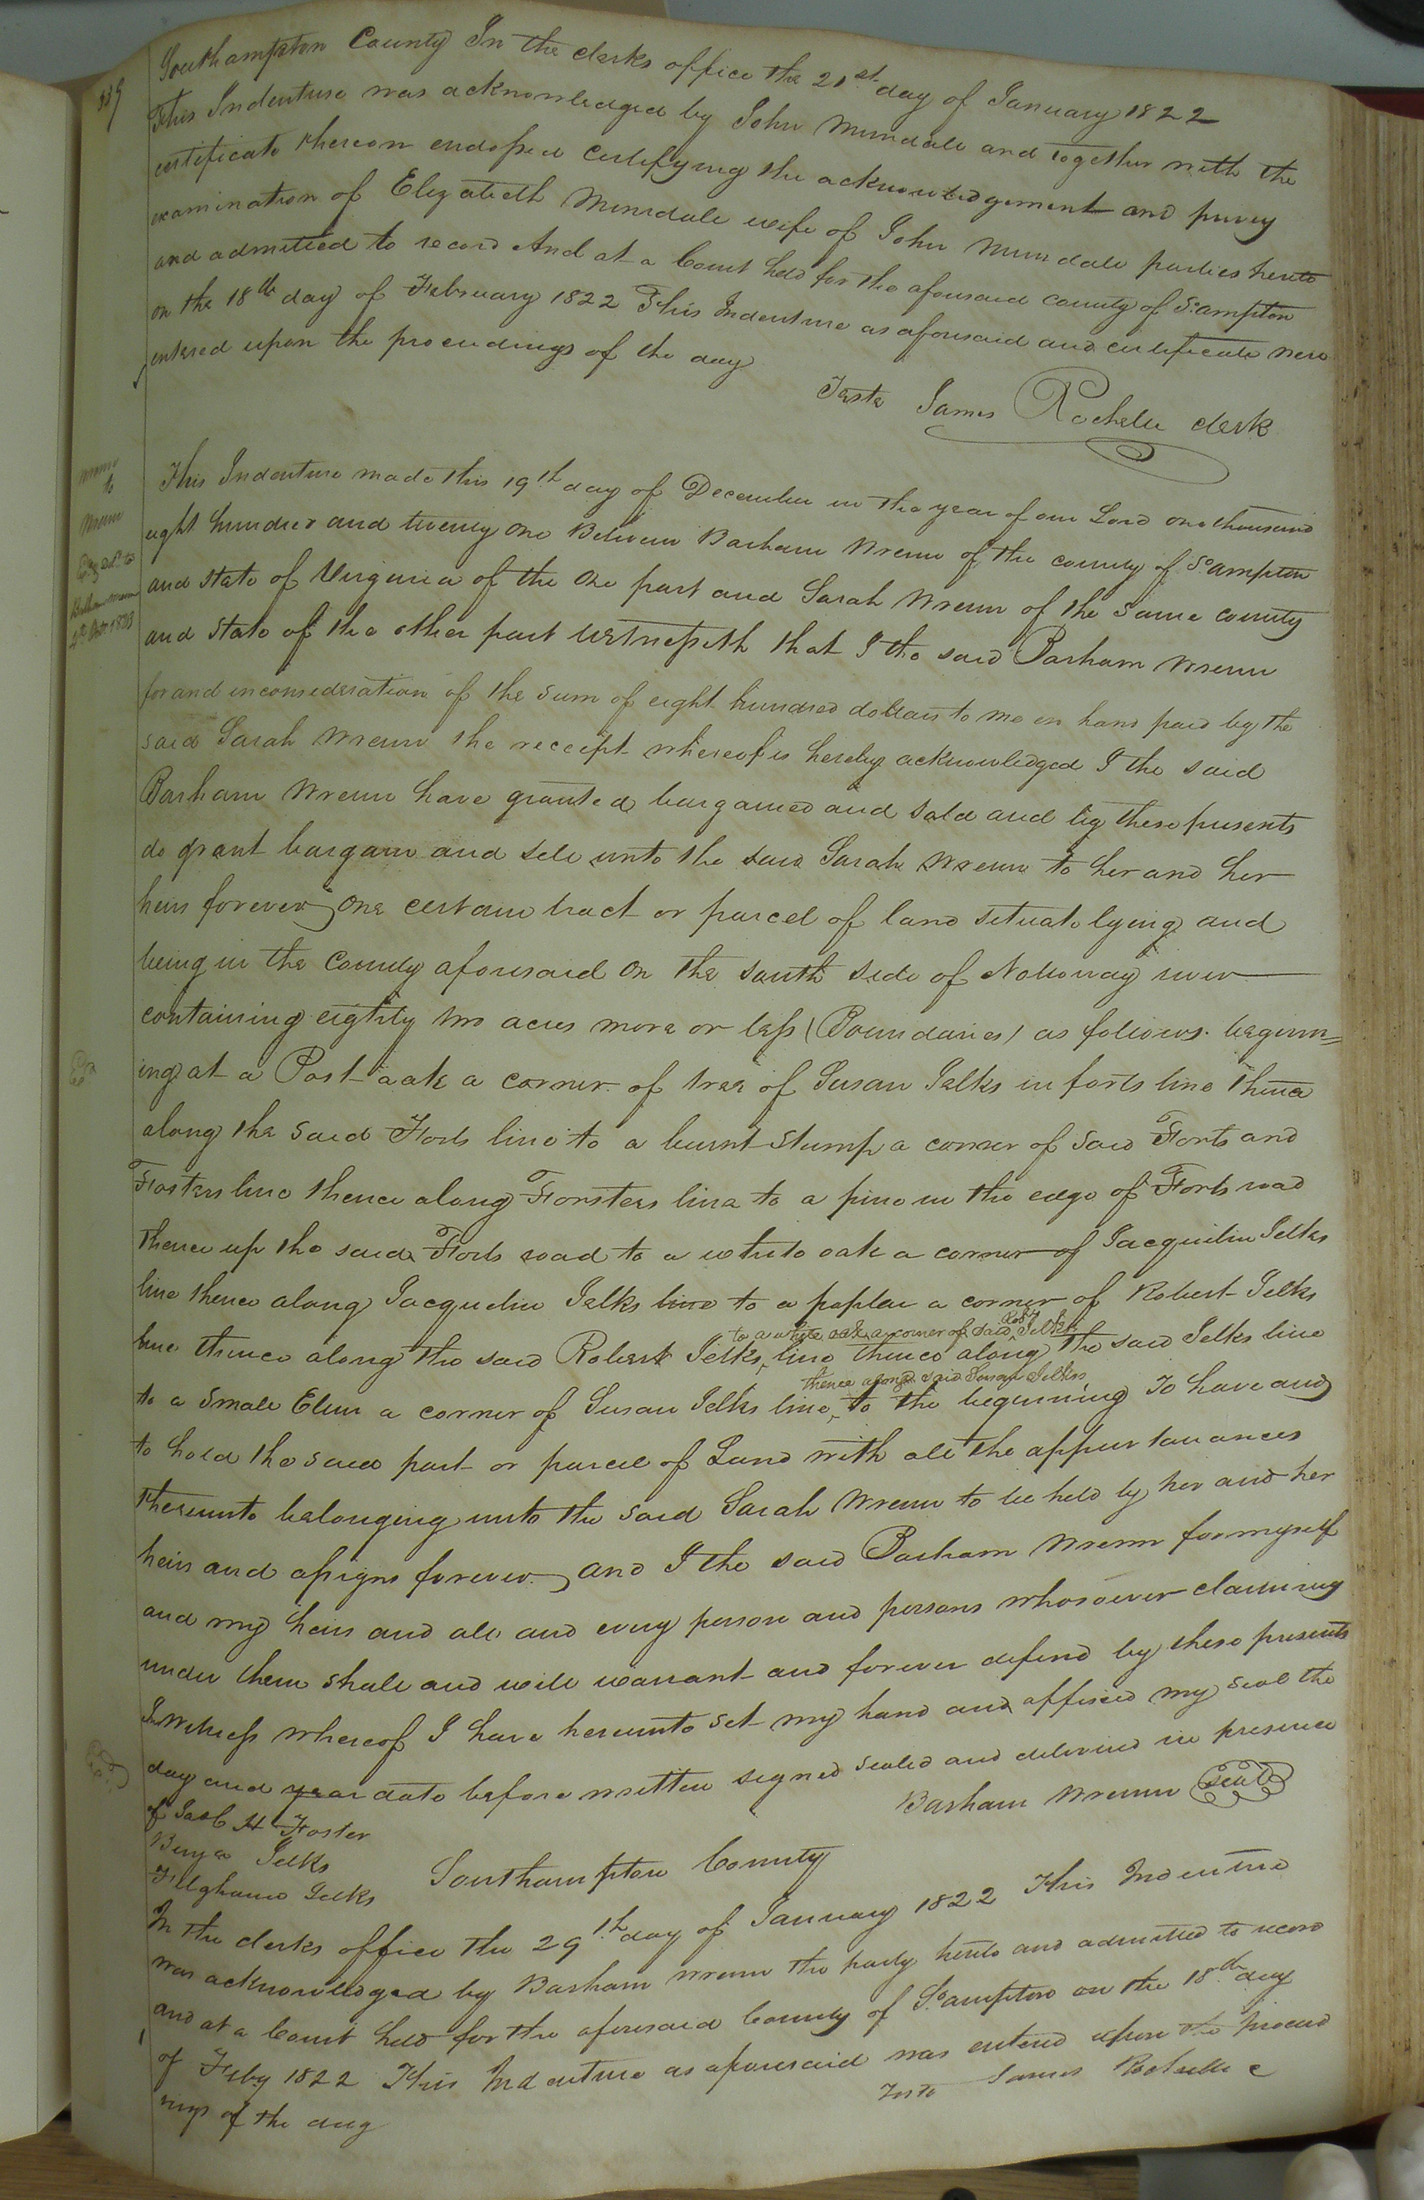 339
Southampton County In the clerks office the 21st day of January 1822
This Indenture was acknowledged by John Mundale and together with the
certificate thereon endorsed certifying the acknowledgement and privy
examination of Elizabeth Mundale wife of John Mundale parties hereto
and admitted to record And at a Court held for the aforesaid county of S:ampton
on the 18th day of February 1822 This Indenture as aforesaid and certificate were
entered upon the proceedings of the day
Teste James Rochelle clerk
Wrenn
to
Wrenn
This Indenture made this 19th day of December in the year of our Lord one thousand
eight hundred and twenty one Between Barham Wrenn of the county of S:ampton
and state of Virginia of the one part and Sarah Wrenn of the same county
and state of the other part witnesseth that I the said Barham Wrenn
for and in consideration of the sum of eight hundred dollars to me in hand paid by the
said Sarah Wrenn the receipt whereof is hereby acknowledged I the said
Barham Wrenn have granted bargained and sold and by these presents
do grant bargain and sell unto the said Sarah Wrenn to her and her
heirs forever, one certain tract or parcel of land situate lying and
being in the County aforesaid on the south side of Nottoway river
containing eighty two acres more or less (Boundaries) as follows. beginn=
ing at a Post oak a corner of tree of Susan Jelks in forts line thence
along the said Forts line to a burnt stump a corner of said Forts and
Fosters line thence along Forsters line to a pine in the edge of Forts road
thence up the said Forts road to a white oak a corner of Jacquilin Jelks
line thence along Jacquelin Jelks line to a poplar a corner of Robert Jelks
to a white oak a corner of said Robt Jelks
line thence along the said Robert Jelks, line thence along the said Jelks line
thence along said Susan Jelks
to a small Elm a corner of Susan Jelks line, to the beginning To have and
to hold the said part or parcel of Land with all the appurtanances
thereunto belonging unto the said Sarah Wrenn to be held by her and her
heirs and assigns forever. and I the said Barham Wrenn for myself
and my heirs and all and every person and persons whosoever claiming
under them shall and will warrant and forever defend by these presents
In witness whereof I have hereunto set my hand and affixed my seal the
day and year date before written signed sealed and delivered in presence
of Jacob H Foster
Barham Wrenn Seal
Benja Jelks
Tilghman Jelks
Southampton County
In the clerks office the 29th day of January 1822 This Indenture
was acknowledged by Barham Wrenn the party hereto and admitted to record
and at a Court held for the aforesaid County of S:ampton on the 18th day
of Feby 1822 This Indenture as aforesaid was entered upon the proceed
ings of the day
Teste James Rochelle c